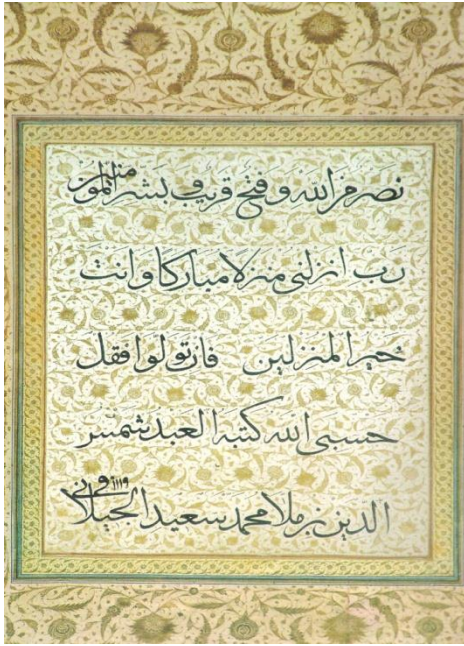 نصر من الله وفتح قريب و بشر المؤمنين
رب انزلنی منزلا مبارکا وانت
خیر المنزلین فان تولوا فقل
حسبی الله کتبه العبد شمس
الدین بن ملا محمد سعید الجیلانی فی ۱۱۱۹